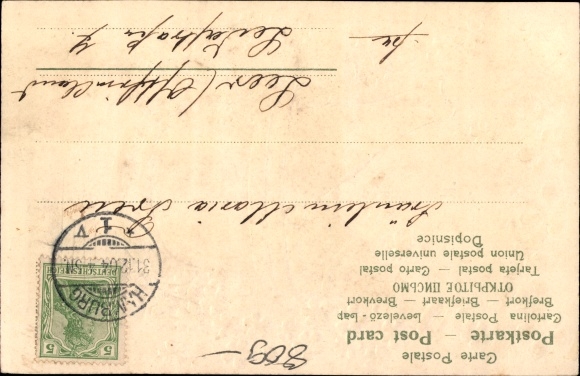 Carte Postale
Postkarte — Post card
Cartolina Postale — Levelező-Lap
Brefkort — Briefkaart — Brevkort
ОТКРЫТОЕ ПИСЬМО
Tarjeta postal — Carto postal
Union postale universelle
Dopisnice
5 5
DEUTSCHES REICH
HAMBURG
31.12.04.4-5N.
1 V
Fräulein Maria
Leer (Ostfriesland
Lindenstraße 7.